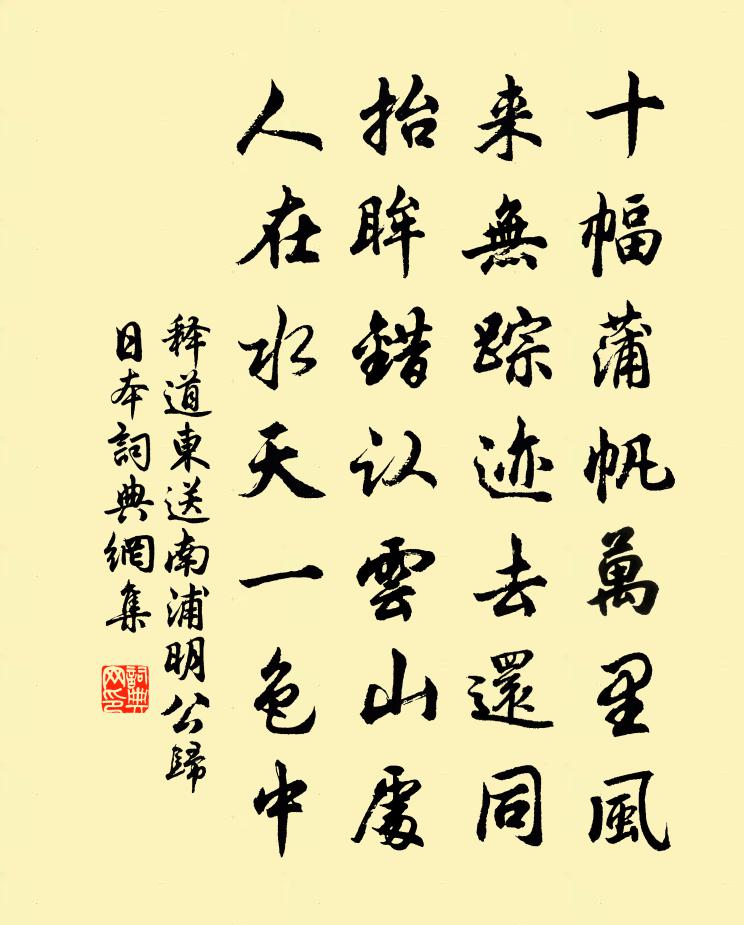 十幅蒲帆萬里風
来無踪迹去還同
抬眸錯认雲山處
人在水天一色中
释道東送南浦明公歸
日本詞典網集
詞典
网印